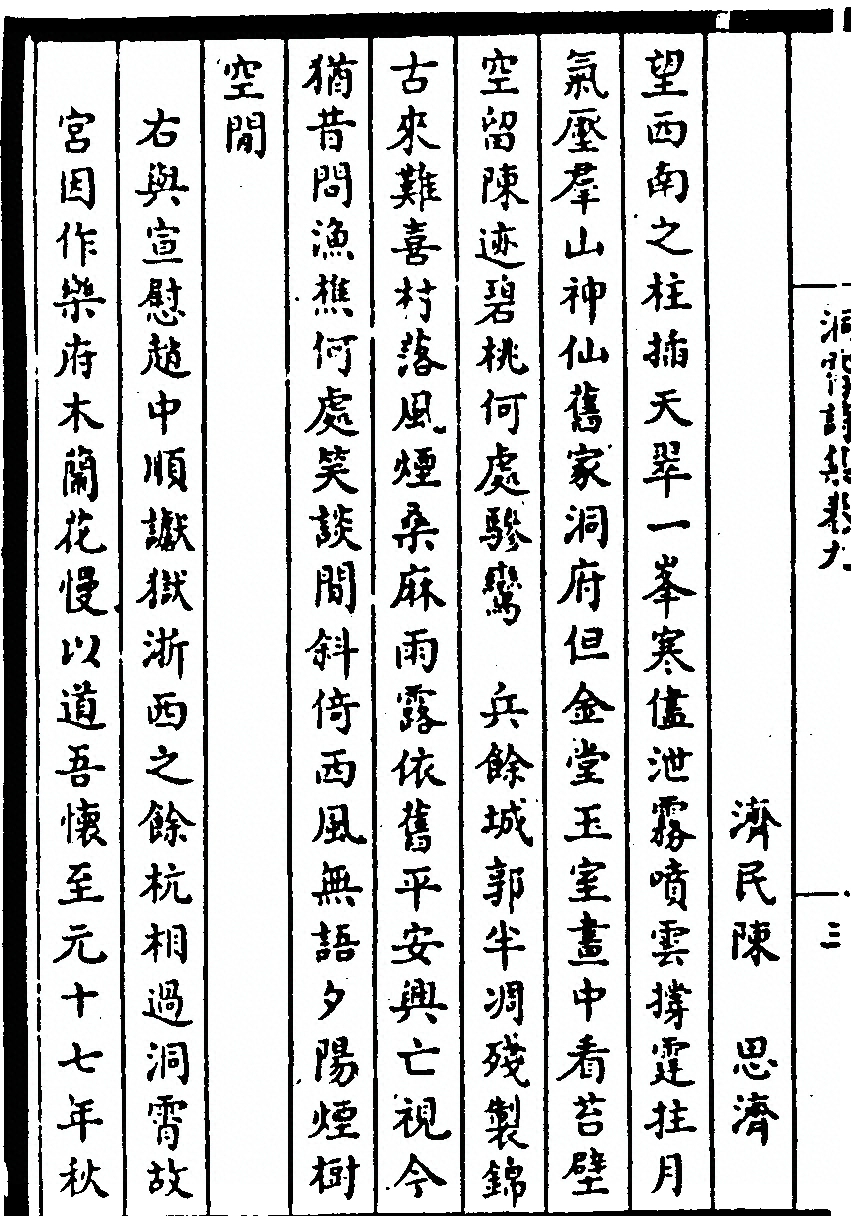 洞霄詩集卷九
三
濟民陳　思濟
望西南之柱插天翠一峯寒儘泄霧噴雲撐霆拄月
氣壓羣山神仙舊家洞府但金堂玉室畫中看苔壁
空留陳迹碧桃何處驂鸞　兵餘城郭半凋殘製錦
古來難喜村落風煙桑麻雨露依舊平安興亡視今
猶昔問漁樵何處笑談間斜倚西風無語夕陽煙樹
空閒
右與宣慰趙中順讞獄浙西之餘杭相過洞霄故
宮因作樂府木蘭花慢以道吾懷至元十七年秋